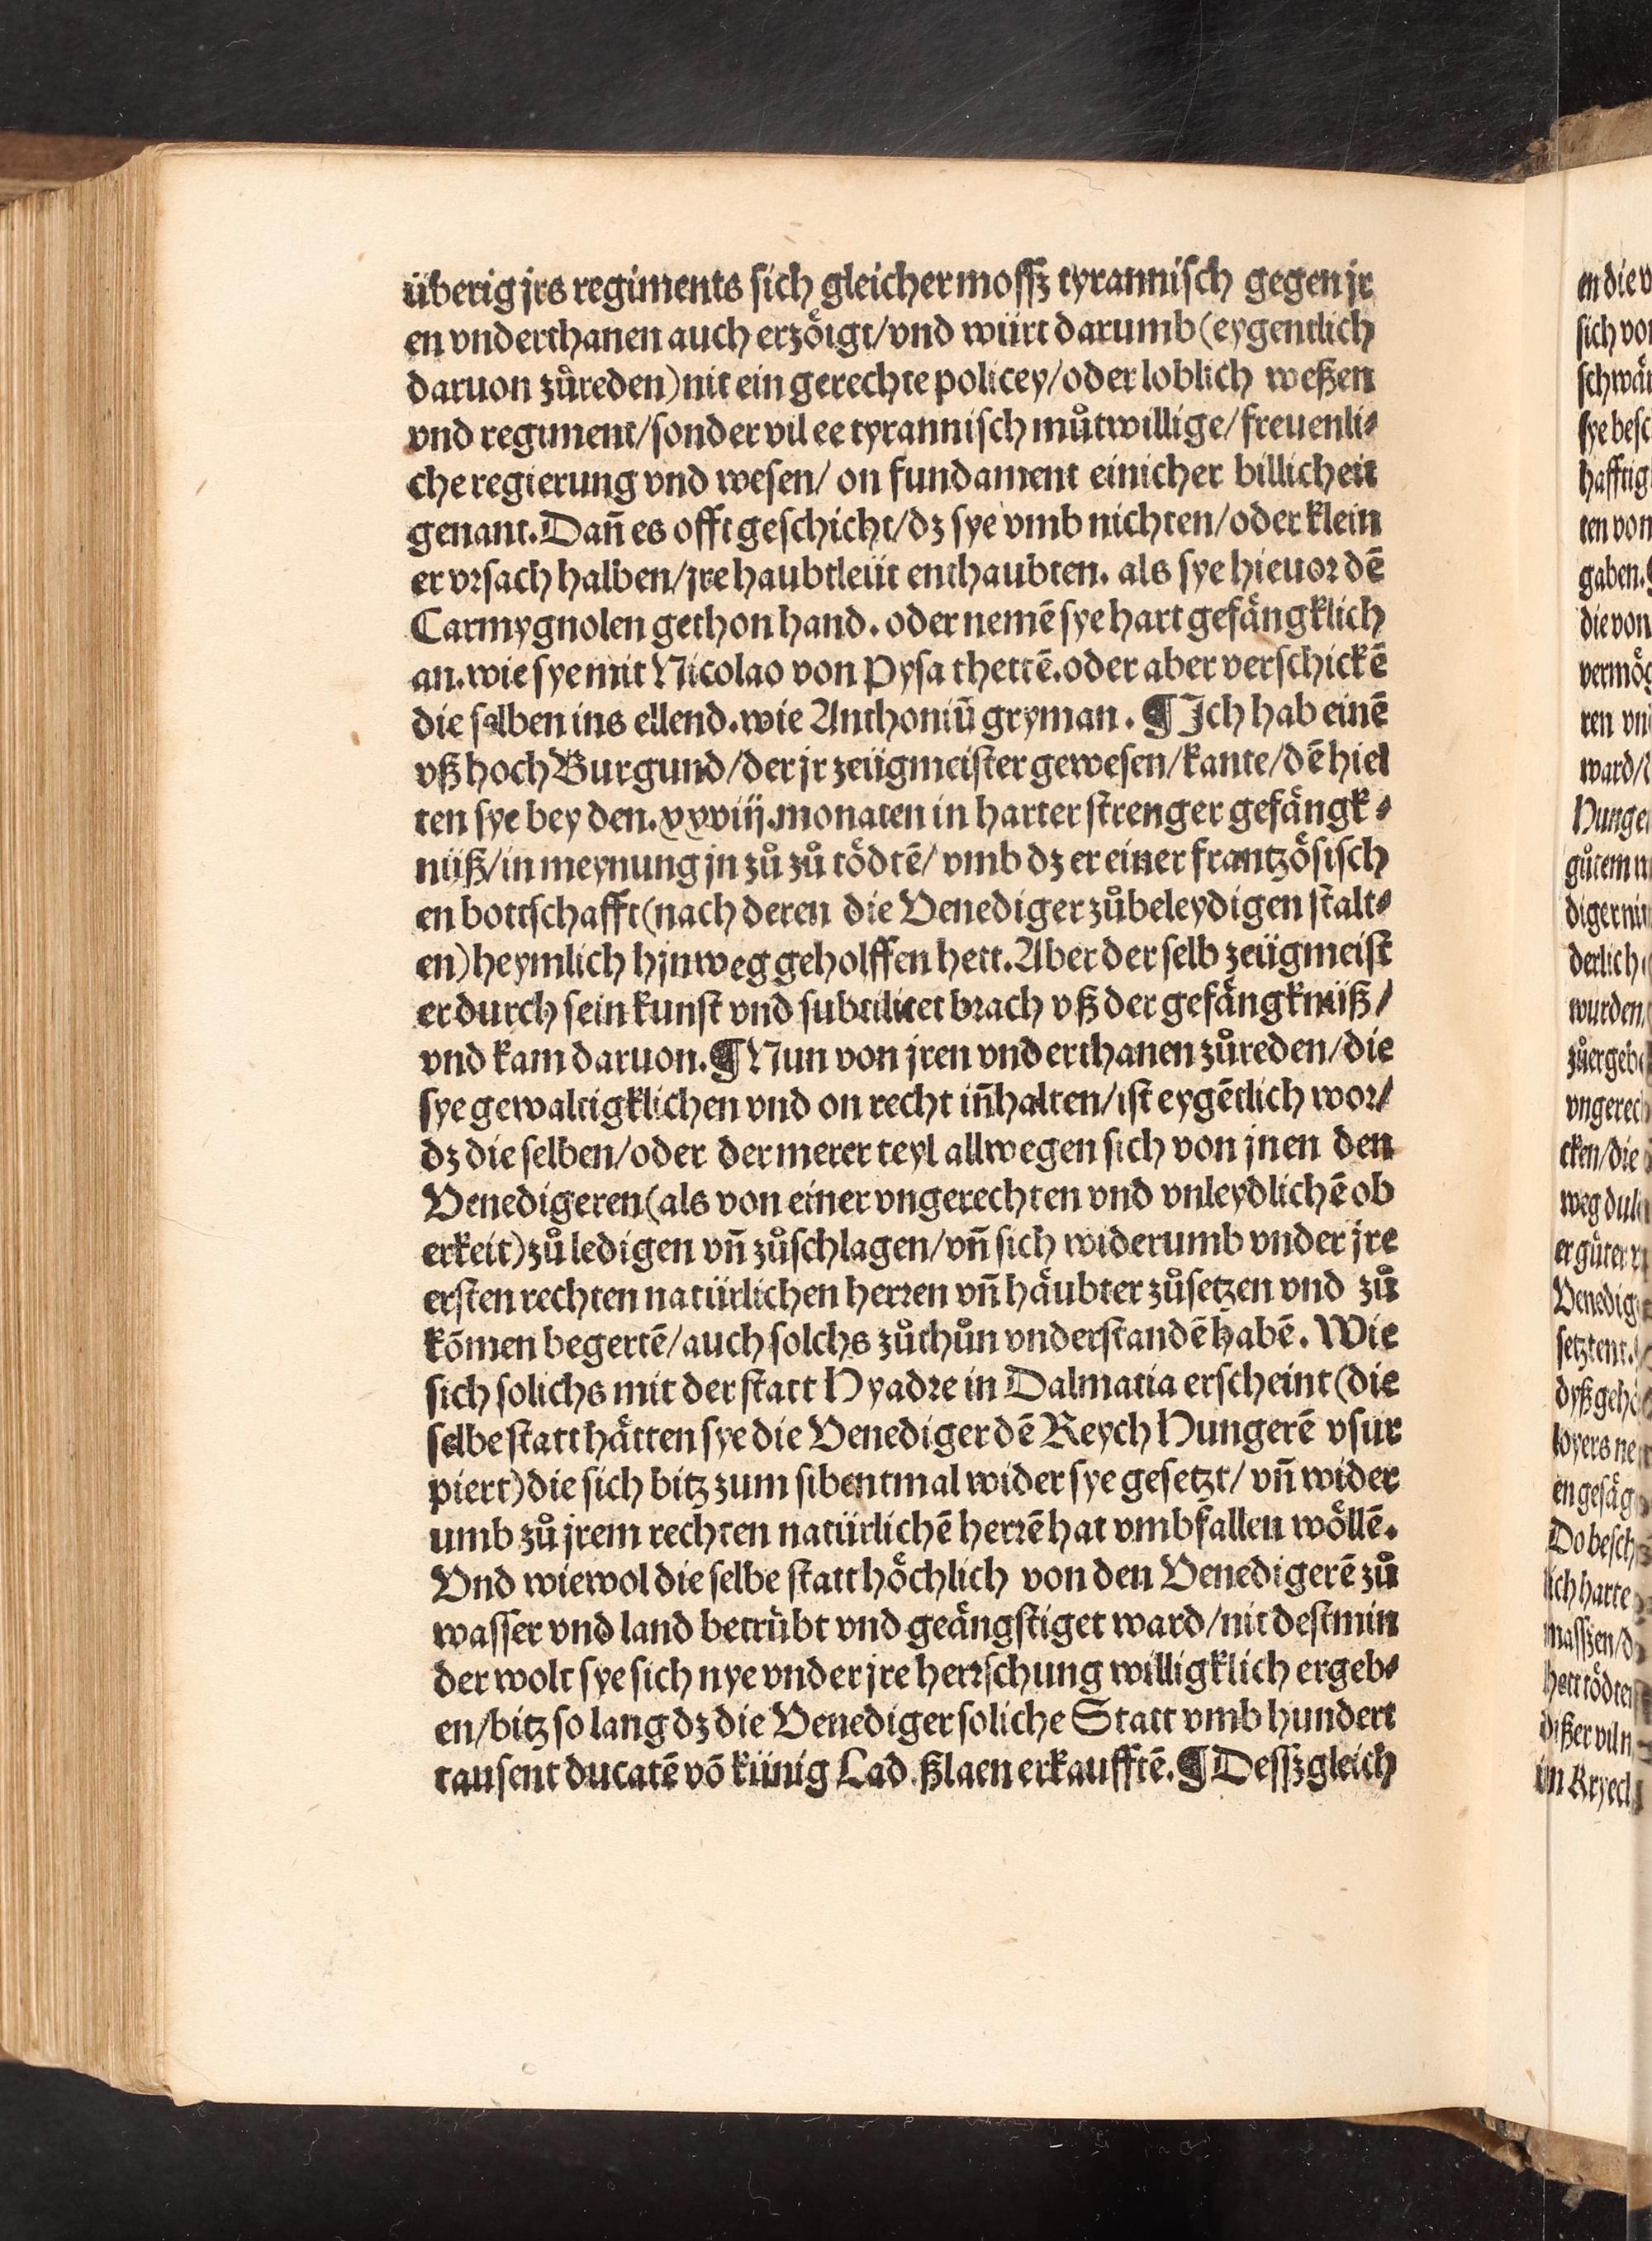 überig jrs regiments sich gleicher mossz tyrannisch gegen jr
en vnderthanen auch erzöigt/vnd würt darumb (eygentlich
daruon zůreden) nit ein gerechte policey/oder loblich weßen
vnd regiment/sonder vil ee tyrannisch můtwillige/freuenli⸗
che regierung vnd wesen/ on fundament einicher billicheit
genant. Dañ es offt geschicht/dz sye vmb nichten/oder klein
er vrsach halben/jre haubtleüt enthaubten. als sye hieuor dē
Carmygnolen gethon hand. oder nemē sye hart gefängklich
an. wie sye mit Nicolao von Pysa thettē. oder aber verschickē
die selben ins ellend. wie Anthoniū gryman. ¶ Ich hab einē
vß hoch Burgund/der jr zeügmeister gewesen/kante/dē hiel
ten sye bey den. xxviij. monaten in harter strenger gefängk⸗
nüß/in meynung jn zů zů tödtē/ vmb dz er einer frantzösisch
en bottschafft (nach deren die Venediger zůbeleydigen stalt⸗
en) heymlich hjnweg geholffen hett. Aber der selb zeügmeist
er durch sein kunst vnd subtilitet brach vß der gefängknüß/
vnd kam daruon. ¶ Nun von jren vnderthanen zůreden/die
sye gewaltigklichen vnd on recht iñhalten/ist eygētlich wor/
dz die selben/oder der merer teyl allwegen sich von jnen den
Venedigeren (als von einer vngerechten vnd vnleydlichē ob
erkeit) zů ledigen vñ zůschlagen/vñ sich widerumb vnder jre
ersten rechten natürlichen herren vñ häubter zůsetzen vnd zů
kōmen begertē/auch solchs zůthůn vnderstandē habē. Wie
sich solichs mit der statt Hyadre in Dalmatia erscheint (die
selbe statt hätten sye die Venediger dē Reych Hungerē vsur
piert) die sich bitz zum sibentmal wider sye gesetzt/ vñ wider
umb zů jrem rechten natürlichē herrē hat vmbfallen wöllē.
Vnd wiewol die selbe statt höchlich von den Venedigerē zů
wasser vnd land betrübt vnd geängstiget ward/nit destmin
der wolt sye sich nye vnder jre herrschung willigklich ergeb⸗
en/bitz so lang dz die Venediger soliche Statt vmb hundert
tausent ducatē vō künig Lad.ßlaen erkaufftē. ¶ Dessz gleich